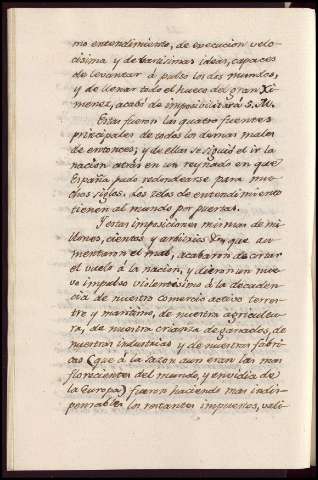 mo entendimiento, de execucion velo-
cisima y de vastisimas ideas, capaces
de levantar à pulso los dos mundos,
y de llenar todo el hueco del gran Xi-
menez, acabó de imposibilitar à S. M.
Estas fueron las quatro fuentes
principales de todos los demas males
de entonces; y de ellas se siguió el ir la
nacion atras en un reynado en que
España pudo redondearse para mu-
chos siglos. Los zelos de entendimiento
tienen al mundo por puertas.
Y estas imposiciones mismas de mi-
llones, cientos y arbitrios &c, que au-
mentaron el mal, acabaron de cortar
el vuelo à la nacion, y dieron un nue-
vo impulso violentisimo à la decaden-
cia de nuestro comercio activo terres-
tre y maritimo, de nuestra agricultu-
ra, de nuestra crianza de ganados, de
nuestras industrias y de nuestras fabri-
cas (que à la sazon aun eran las mas
florecientes del mundo, y envidia de
la Europa) fueron haciendo mas indis-
pensables los restantes impuestos, vali-